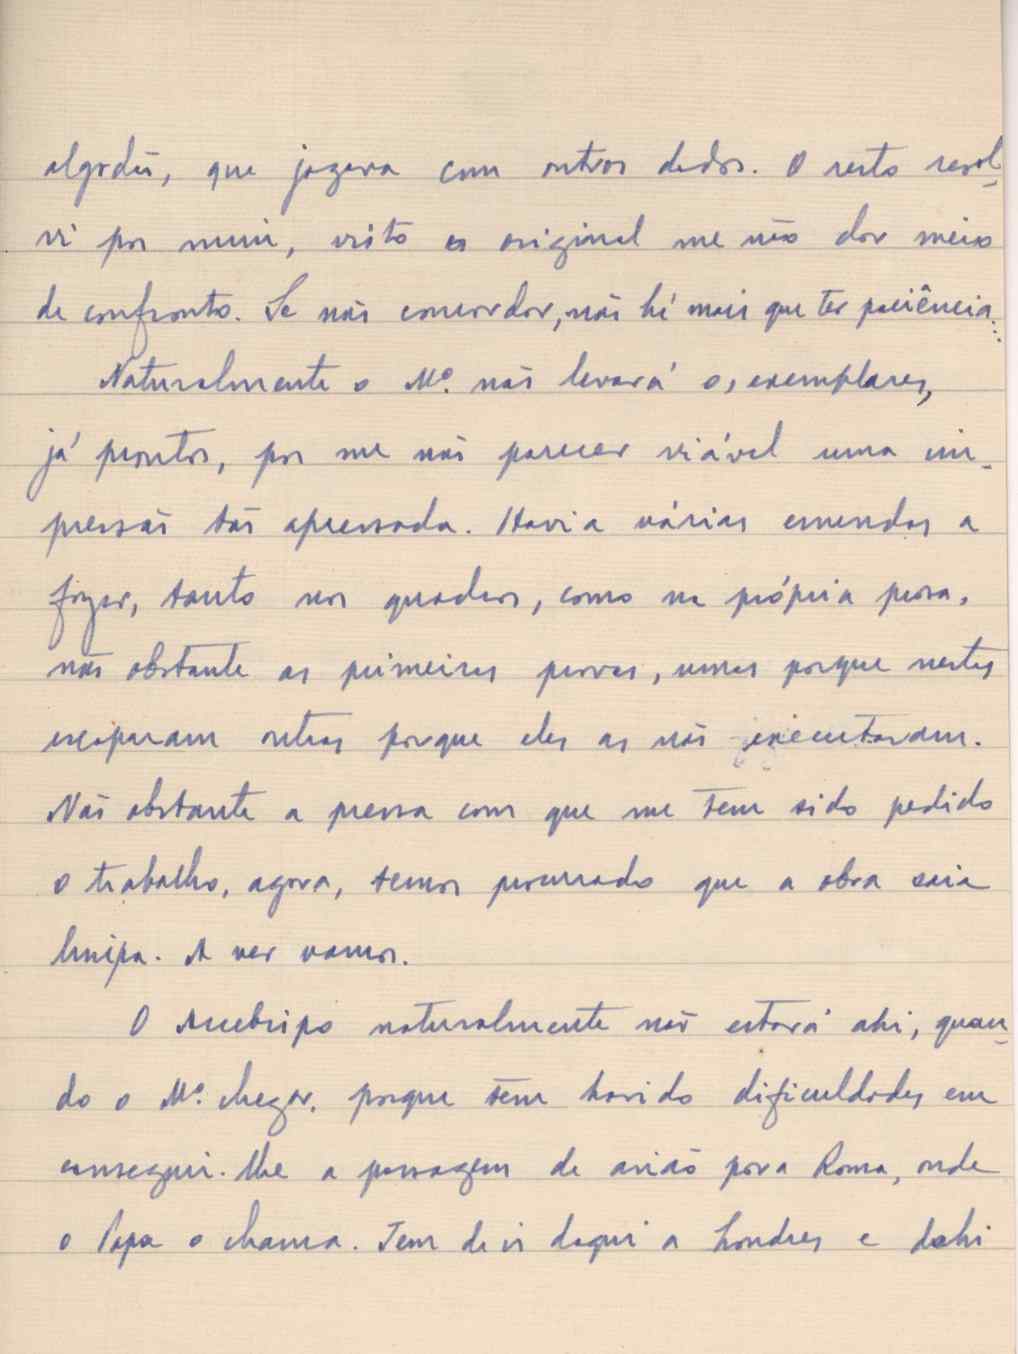 algodão, que jogava com outros dados. O resto resol-
vi por mim, visto o original me não dar meio
de confronto. Se não concordar, não há mais que ter paciência...
Naturalmente o Mº. não levará os exemplares,
já prontos, por me não parecer viável uma im-
pressão tão apressada. Havia várias emendas a
fazer, tanto nos quadros, como na própria prosa,
não obstante as primeiras provas, umas porque nestas
escaparam outras porque eles as não executaram.
Não obstante a pressa com que me tem sido pedido
o trabalho, agora, temos procurado que a obra saia
limpa. A ver vamos.
O Arcebispo naturalmente não estará ahi, quan-
do o Mº. chegar, porque têm havido dificuldades em
conseguir-lhe a passagem de avião para Roma, onde
o Papa o chama. Tem de ir daqui a Londres e dahi